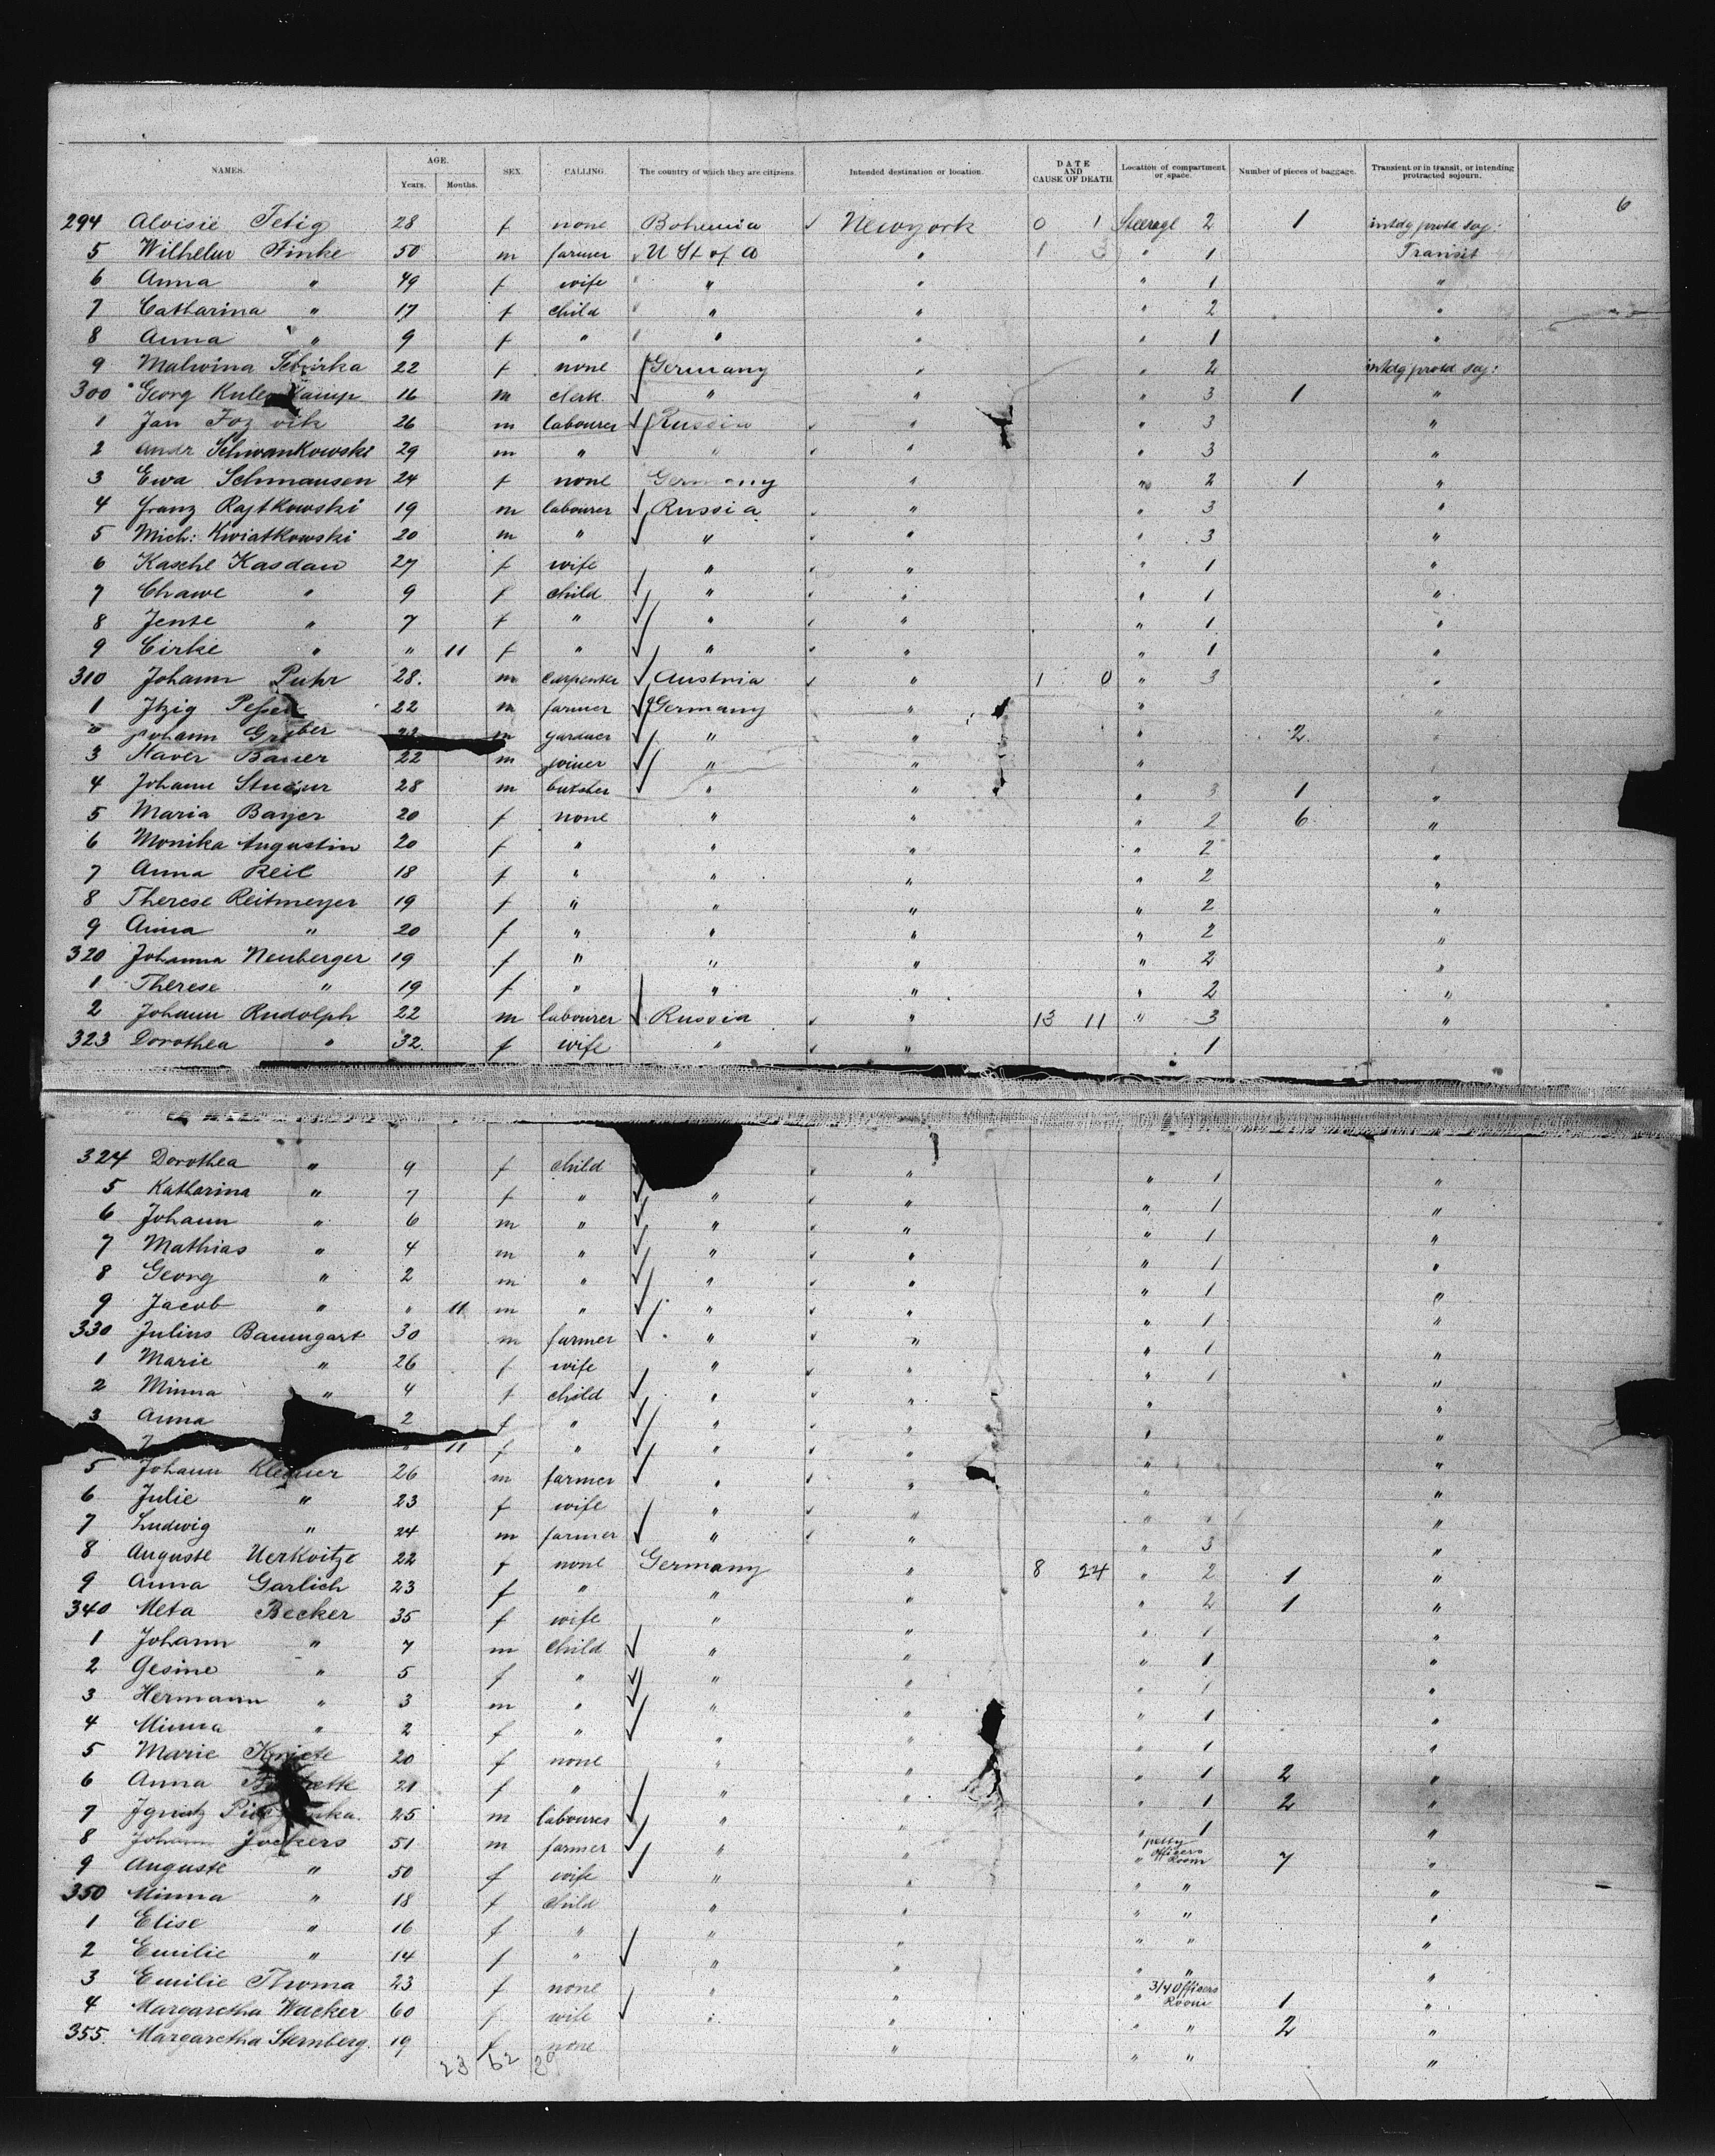 6
NAMES. AGE. Years. Months. SEX. CALLING. The country of which they are citizens. Intended destination or location. DATE AND CAUSE OF DEATH. Location of compartment or space. Number of pieces of baggage. Transient or in transit, or intending protracted sojourn.
294 Aloisie Tetig 28 f none Bohemia Newyork 0 1 Steerage 2 1 intdg protd soj:
5 Wilhelm Finke 50 m farmer U St of A " 1 3 " 1 Transit
6 Anna " 49 f wife " " " 1 "
7 Catharina " 17 f child " " " 2 "
8 Anna " 9 f " " " " 1 "
9 Malwina 22 f none Germany " " 2 intdg protd soj:
300 Georg 16 m clerk " " " 3 1 "
1 Jan 26 m labourer Russia " " 3 "
2 Andr Schwankowski 29 m " " " " 3 "
3 Ewa Schmausen 24 f none Germany " " 2 1 "
4 Franz Rajtkowski 19 m labourer Russia " " 3 "
5 Mich: Kwiatkowski 20 m " " " " 3 "
6 Kasche Kasdan 27 f wife " " " 1 "
7 Chawe " 9 f child " " " 1 "
8 Jente " 7 f " " " " 1 "
9 Cirke " " 11 f " " " " 1 "
310 Johann Puhr 28. m carpenter Austria " 1 0 " 3 "
1 Itzig 22 m farmer Germany " " "
Johann m gardner " " " 2 "
3 Xaver Bauer 22 m joiner " " "
4 Johann 28 m butcher " " " 3 1 "
5 Maria Bayer 20 f none " " " 2 6 "
6 Monika Augustin 20 f " " " " 2 "
7 Anna Reil 18 f " " " " 2 "
8 Therese Reitmeyer 19 f " " " " 2 "
9 Anna " 20 f " " " " 2 "
320 Johanna Neuberger 19 f " " " " 2 "
1 Therese " 19 f " " " " 2 "
2 Johann Rudolph 22 m labourer Russia " 13 11 " 3 "
323 Dorothea " 32. f wife " " 1
324 Dorothea " 9 f child " " 1 "
5 Katharina " 7 f " " " " 1 "
6 Johann " 6 m " " " " 1 "
7 Mathias " 4 m " " " " 1 "
8 Georg " 2 m " " " " 1 "
9 Jacob " " 11 m " " " " 1 "
330 Julius Baumgart 30 m farmer " " " 1 "
1 Marie " 26 f wife " " " 1 "
2 Minna " 4 f child " " " "
3 Anna 2 f " " " " "
11 f " " " " "
5 Johann 26 m farmer " " " "
6 Julie " 23 f wife " " " "
7 Ludwig " 24 m farmer " " " 3 "
8 Auguste Uerkvitze 22 f none Germany " 8 24 " 2 1 "
9 Anna Garlich 23 f " " " " 2 1 "
340 Meta Becker 35 f wife " " " 1 "
1 Johann " 7 m child " " " 1 "
2 Gesine " 5 f " " " " 1 "
3 Hermann " 3 m " " " " 1 "
4 Minna " 2 f " " " " 1 "
5 Marie 20 f none " " " 1 2 "
6 Anna 21 f " " " " 1 2 "
7 Ignatz 25 m labourer " " " 1 "
8 Johann Jockers 51 m farmer " " " petty officers Room 7 "
9 Auguste " 50 f wife " " " " "
350 Minna " 18 f child " " " " "
1 Elise " 16 f " " " " " "
2 Emilie " 14 f " " " " " "
3 Emilie Thoma 23 f none " " " 3/4 Officers Room 1 "
4 Margaretha Wacker 60 f wife " " " 2 "
355. Margaretha Sternberg. 19 f none " " " "
23 62